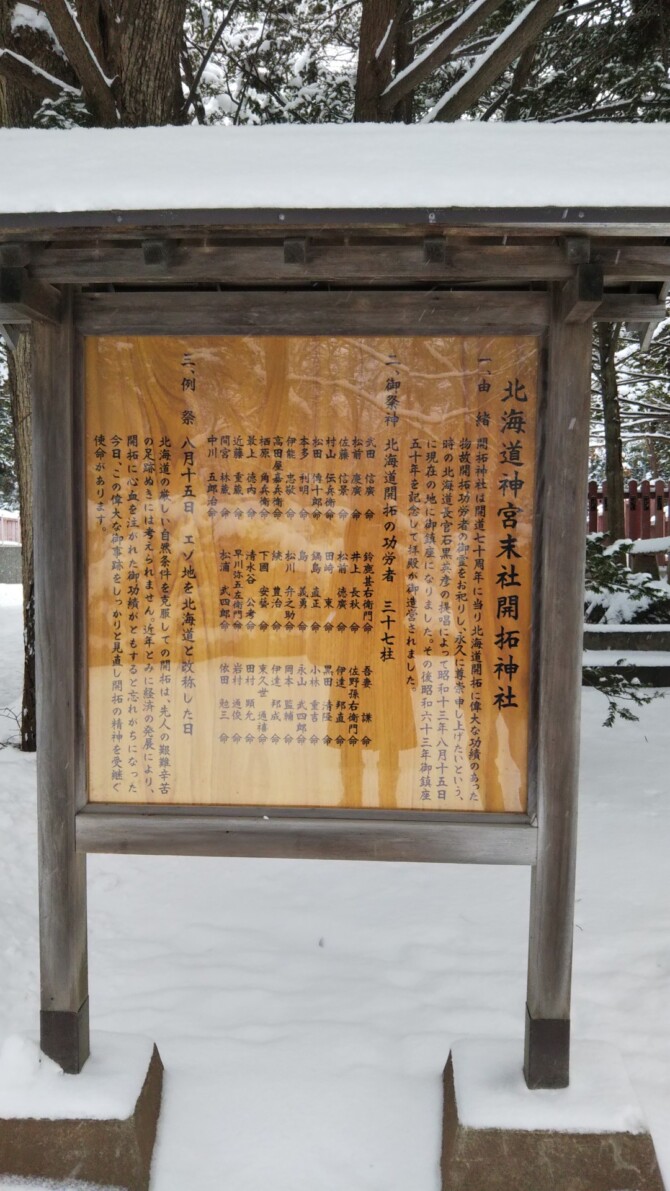 北海道神宮末社開拓神社
一、由緒 開拓神社は開道七十周年に当り北海道開拓に偉大な功績のあった
物故開拓功労者の御霊をお祀りし、永久に尊崇申し上げたいという、
時の北海道長官石黒英彦の提唱によって昭和十三年八月十五日
に現在の地に御鎮座になりました。その後昭和六十三年御鎮座
五十年を記念して拝殿が御造営されました。
二、御祭神 北海道開拓の功労者 三十七柱
武田 信廣 命 鈴鹿甚右衛門命 吾妻 謙 命
松前 慶廣 命 井上 長秋 命 佐野孫右衛門命
佐藤 信景 命 松前 徳廣 命 伊達 邦直 命
村山 伝兵衛 命 田崎 東 命 黒田 清隆 命
松田 傳十郎 命 鍋島 直正 命 小林 重吉 命
本多 利明 命 島 義勇 命 永山 武四郎 命
伊能 忠敬 命 松川 弁之助 命 岡本 監輔 命
高田屋嘉兵衛命 続 豊治 命 伊達 邦成 命
栖原 角兵衛 命 下國 安藝 命 東久世 通禧 命
近藤 重蔵 命 早川弥五左衛門命 岩村 通俊 命
最上 徳内 命 清水谷 公考 命 田村 顕允 命
間宮 林蔵 命 松浦 武四郎 命 依田 勉三 命
中川 五郎治 命
三、例祭 八月十五日 エゾ地を北海道と改称した日
北海道の厳しい自然条件を克服しての開拓は、先人の艱難辛苦
の足跡ぬきには考えられません。近年とみに経済の発展により、
開拓に心血を注がれた御功績がともすると忘れがちになった
今日、この偉大な御事跡をしっかりと見直し開拓の精神を受継ぐ
使命があります。